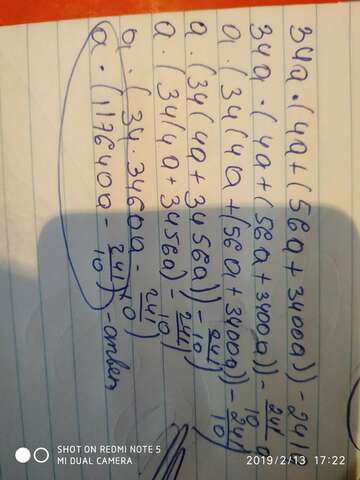 34a · (4a + (56a + 3400a)) -
34a · (4a + (56a + 3400a)) - 241/10 a
a · (34(4a + (56a + 3400a)) - 241/10)
a · (34(4a + 3456a)) - 241/10)
a · (34(4a + 3456a) - 241/10)
a · (34 · 3460a - 241/10)
a · (117640a - 241/10) - ответ
SHOT ON REDMI NOTE 5
MI DUAL CAMERA
2019/2/13 17:22